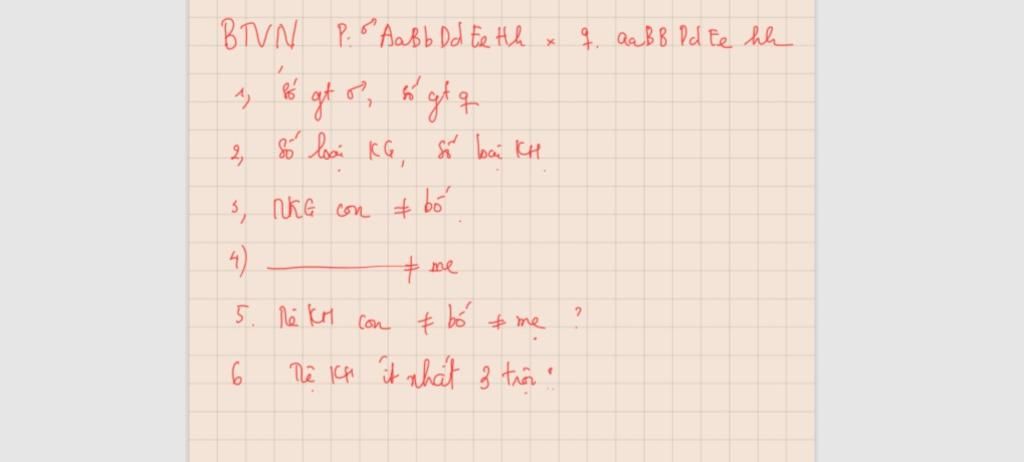 BTVN P: ♂ AaBb Dd Ee Hh × ♀. aaBB Dd Ee hh
1, Số gt ♂, số gt ♀
2, Số loại KG, số loại KH
3, TLKG con ≠ bố.
4) ———— ≠ mẹ
5. Tỉ lệ KH con ≠ bố ≠ mẹ ?
6 Tỉ lệ KH ít nhất 3 trội :